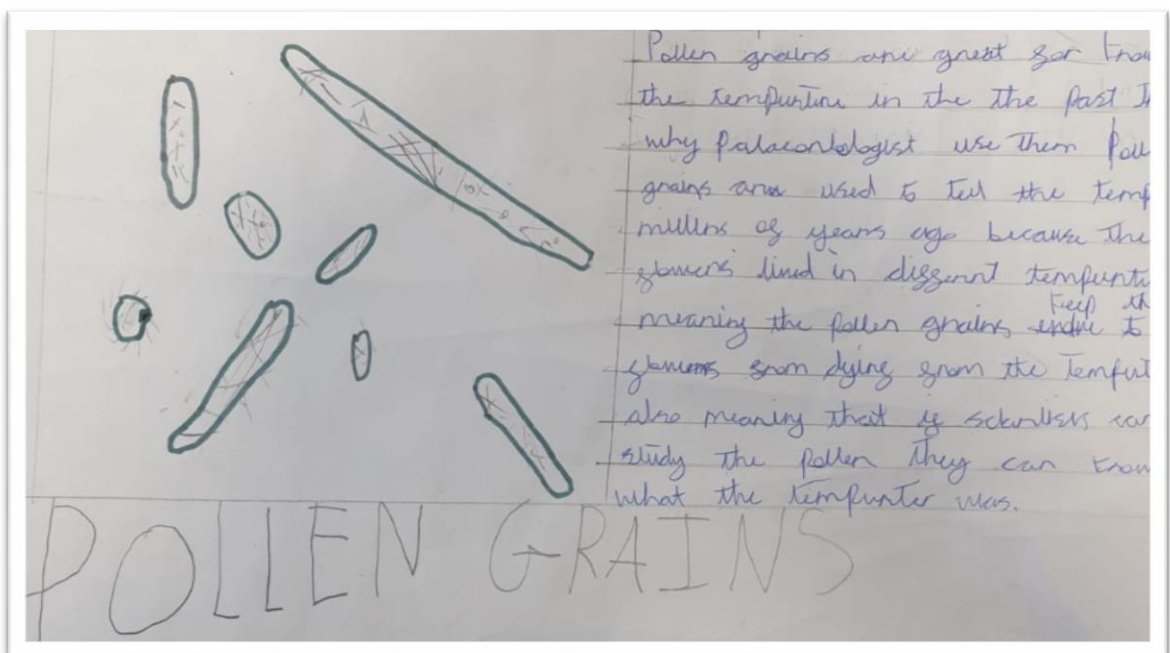 Pollen grains are great for know
the tempunture in the the Past I
why Palaeontologist use them Poll
grains are used to tell the temp
millins of years ago because the
flowers lived in different tempuntu
meaning the pollen grains keep th
to
flowers from dying from the temput
also meaning that if scientists can
study the pollen they can know
what the tempunter was.
POLLEN GRAINS